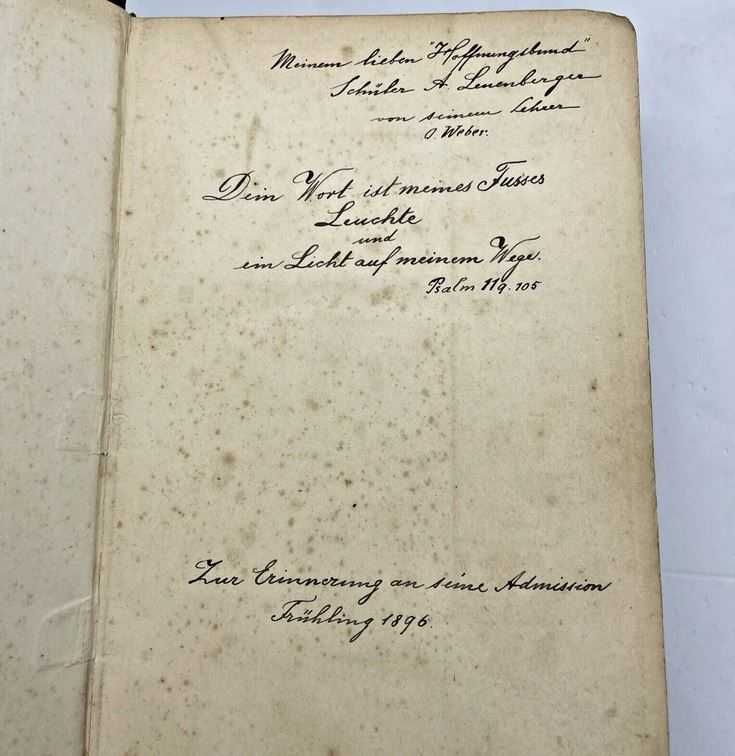 Meinem lieben "Hoffnungsbund"
Schüler A. Leuenberger
von seinem Lehrer
O. Weber.
Dein Wort ist meines Fusses
Leuchte
und
ein Licht auf meinem Wege.
Psalm 119.105
Zur Erinnerung an seine Admission
Frühling 1896.